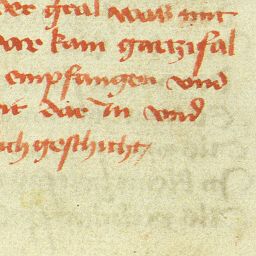 der gral was mit
dar kam partzifal
empfangen vnd
it dar in vnd
uch geschicht